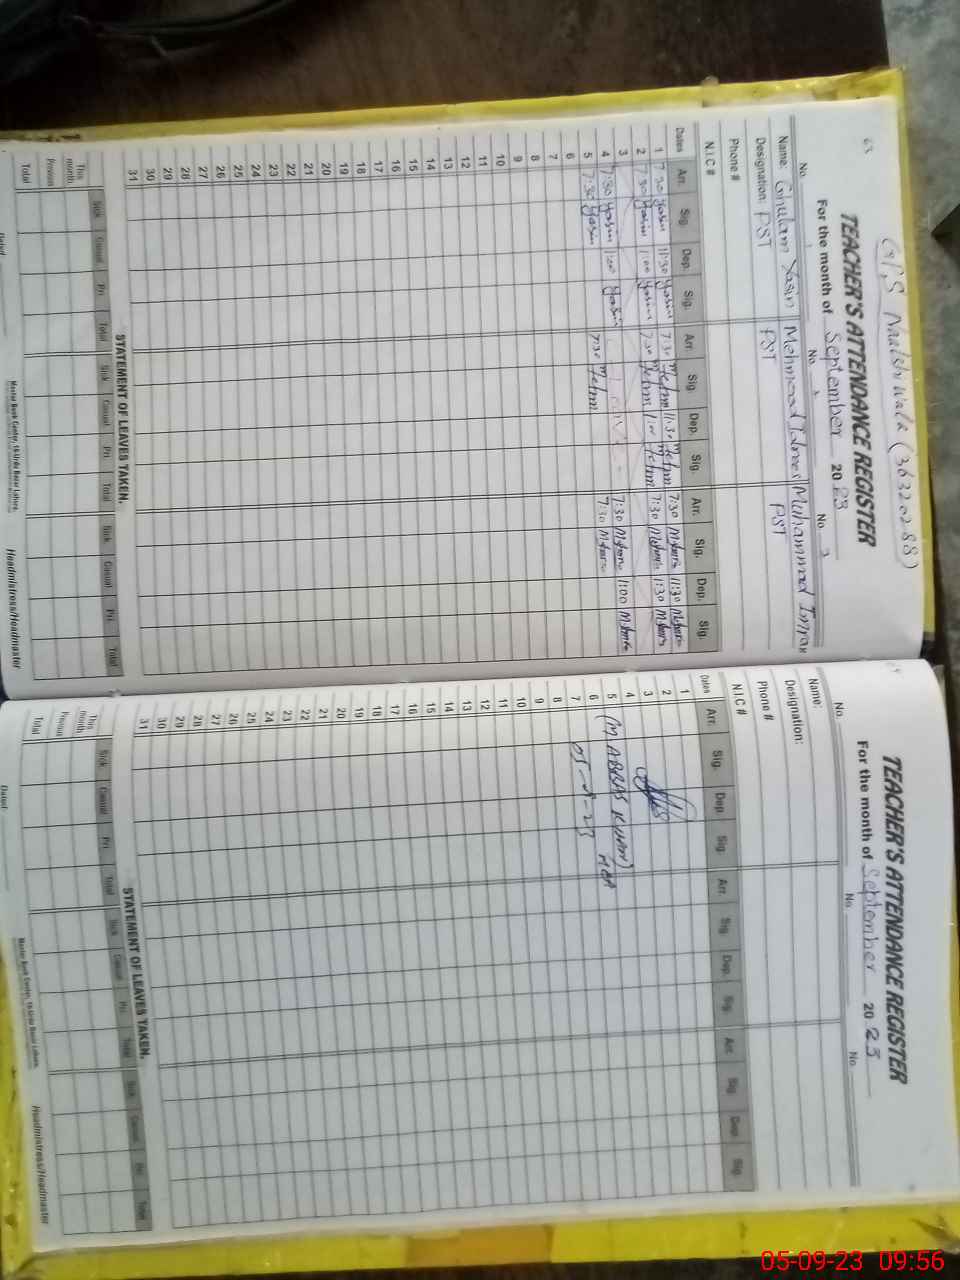 63
GPS Naalshwala (36320288)
TEACHER'S ATTENDANCE REGISTER
For the month of September 2023
No. 1 No. 2 No. 3
Name: Ghulam Yasin Mehmood Idrees Muhammad Imran
Designation: PST PST PST
Phone #
N.I.C #
Dates Arr. Sig. Dep. Sig. Arr. Sig. Dep. Sig. Arr. Sig. Dep. Sig.
1 7:30 Yasin 11:30 Yasin 7:30 11:30 7:30 11:30
2 7:30 Yasin 1:00 Yasin 7:30 1:00 7:30 11:30
3
4 7:30 Yasin 1:00 Yasin Leave 7:30 11:00
5 7:30 Yasin 7:30 7:30
6
7
8
9
10
11
12
13
14
15
16
17
18
19
20
21
22
23
24
25
26
27
28
29
30
31
STATEMENT OF LEAVES TAKEN.
Sick Casual Pri Total Sick Casual Pri Total Sick Casual Pri Total
This month
Previous
Total
Master Book Center, 16-Urdu Bazar Lahore.
Dated: Headmistress/Headmaster
TEACHER'S ATTENDANCE REGISTER
For the month of September 2023
No. No. No.
Name:
Designation:
Phone #
N.I.C #
Dates Arr. Sig. Dep. Sig. Arr. Sig. Dep. Sig. Arr. Sig. Dep. Sig.
1
2
3
4
5 (M ABBAS KHAN)
6
7
8
9
10
11
12
13
14
15
16
17
18
19
20
21
22
23
24
25
26
27
28
29
30
31
STATEMENT OF LEAVES TAKEN.
Sick Casual Pri Total Sick Casual Pri Total Sick Casual Pri Total
This month
Previous
Total
Master Book Center, 16-Urdu Bazar Lahore.
Dated: Headmistress/Headmaster
05-09-23 09:56